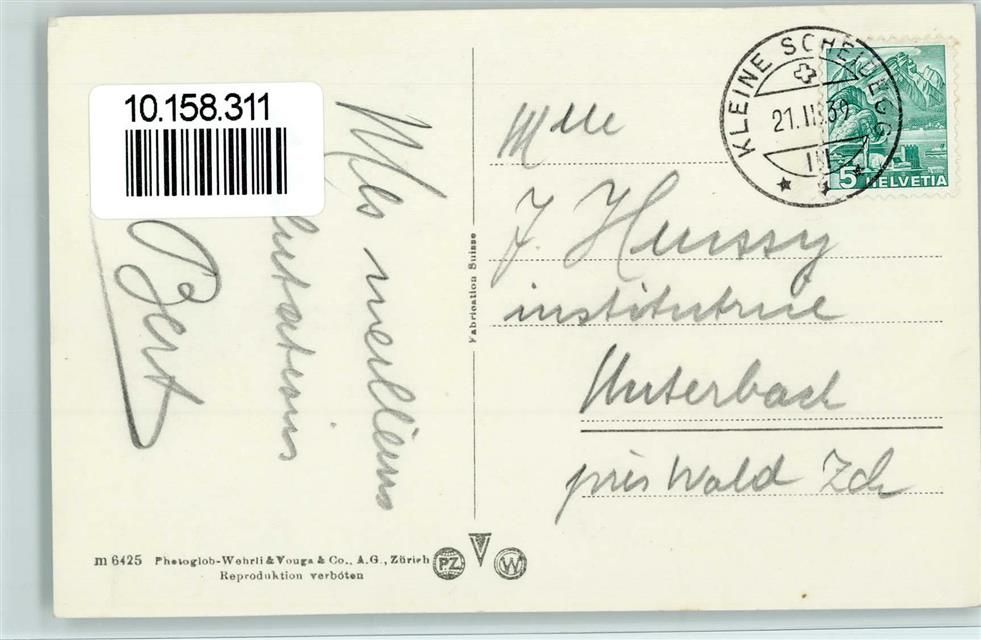 10.158.311
KLEINE SCHEIDEGG
21.II.39
5 HELVETIA
Mes meilleures
salutations
Bert
Mlle
J. Hussy
institutrice
Unterbach
près Wald Zch
Fabrication Suisse
m 6425 Photoglob-Wehrli & Vouga & Co., A.G., Zürich
Reproduktion verboten
PZ
W